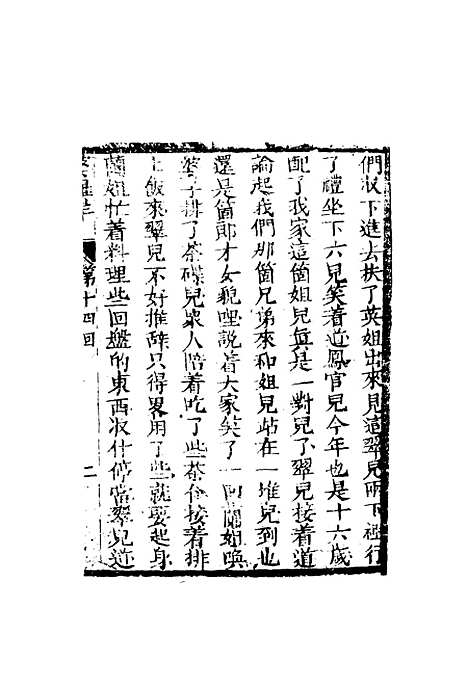 們收下進去扶了英姐出來見這翠兒所下禮行
了禮坐下六兒笑着道鳳官兒今年也是十六歲
配了我家這箇姐兒眞是一對兒了翠兒接着道
論起我們那箇兄弟來和姐兒站在一堆兒到也
還是箇郎才女貌哩説着大家笑了一回蘭姐喚
婆子排了茶碟兒衆人陪着吃了些茶食接着排
上飯來翠兒不好推辞只得畧用了些就要起身
蘭姐忙着料理些回盤的東西收什停當翠兒道
第十四回
二